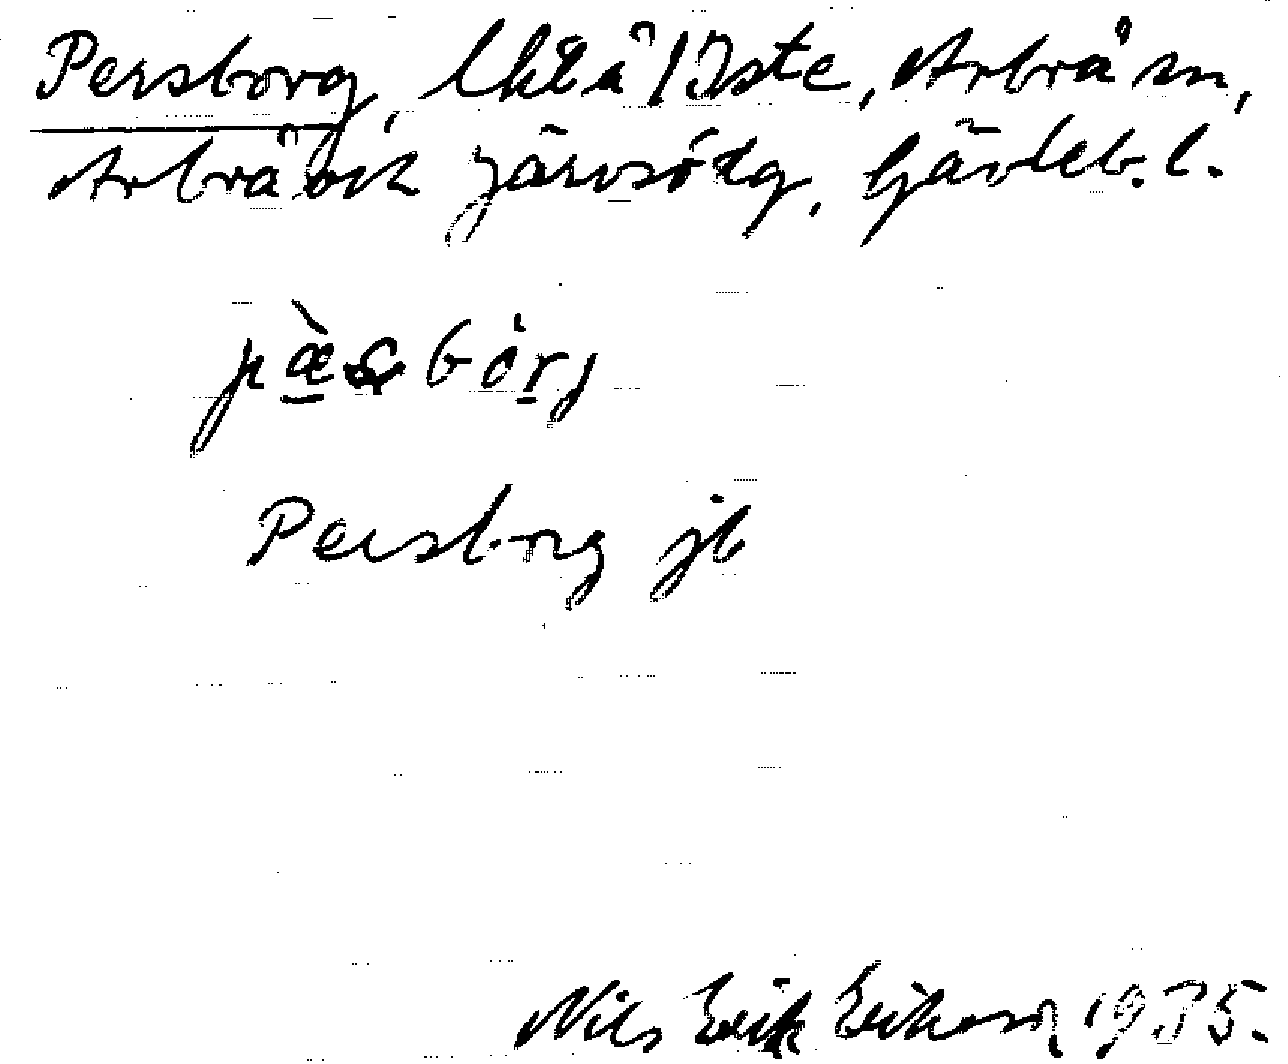 Persborg, lht å 1 Iste, Arbrå sn,
Arbrå och Järvsö tg, Gävleb. l.
pæ̀sbórj
Persborg jb
Nils Erik Erikson 1935.